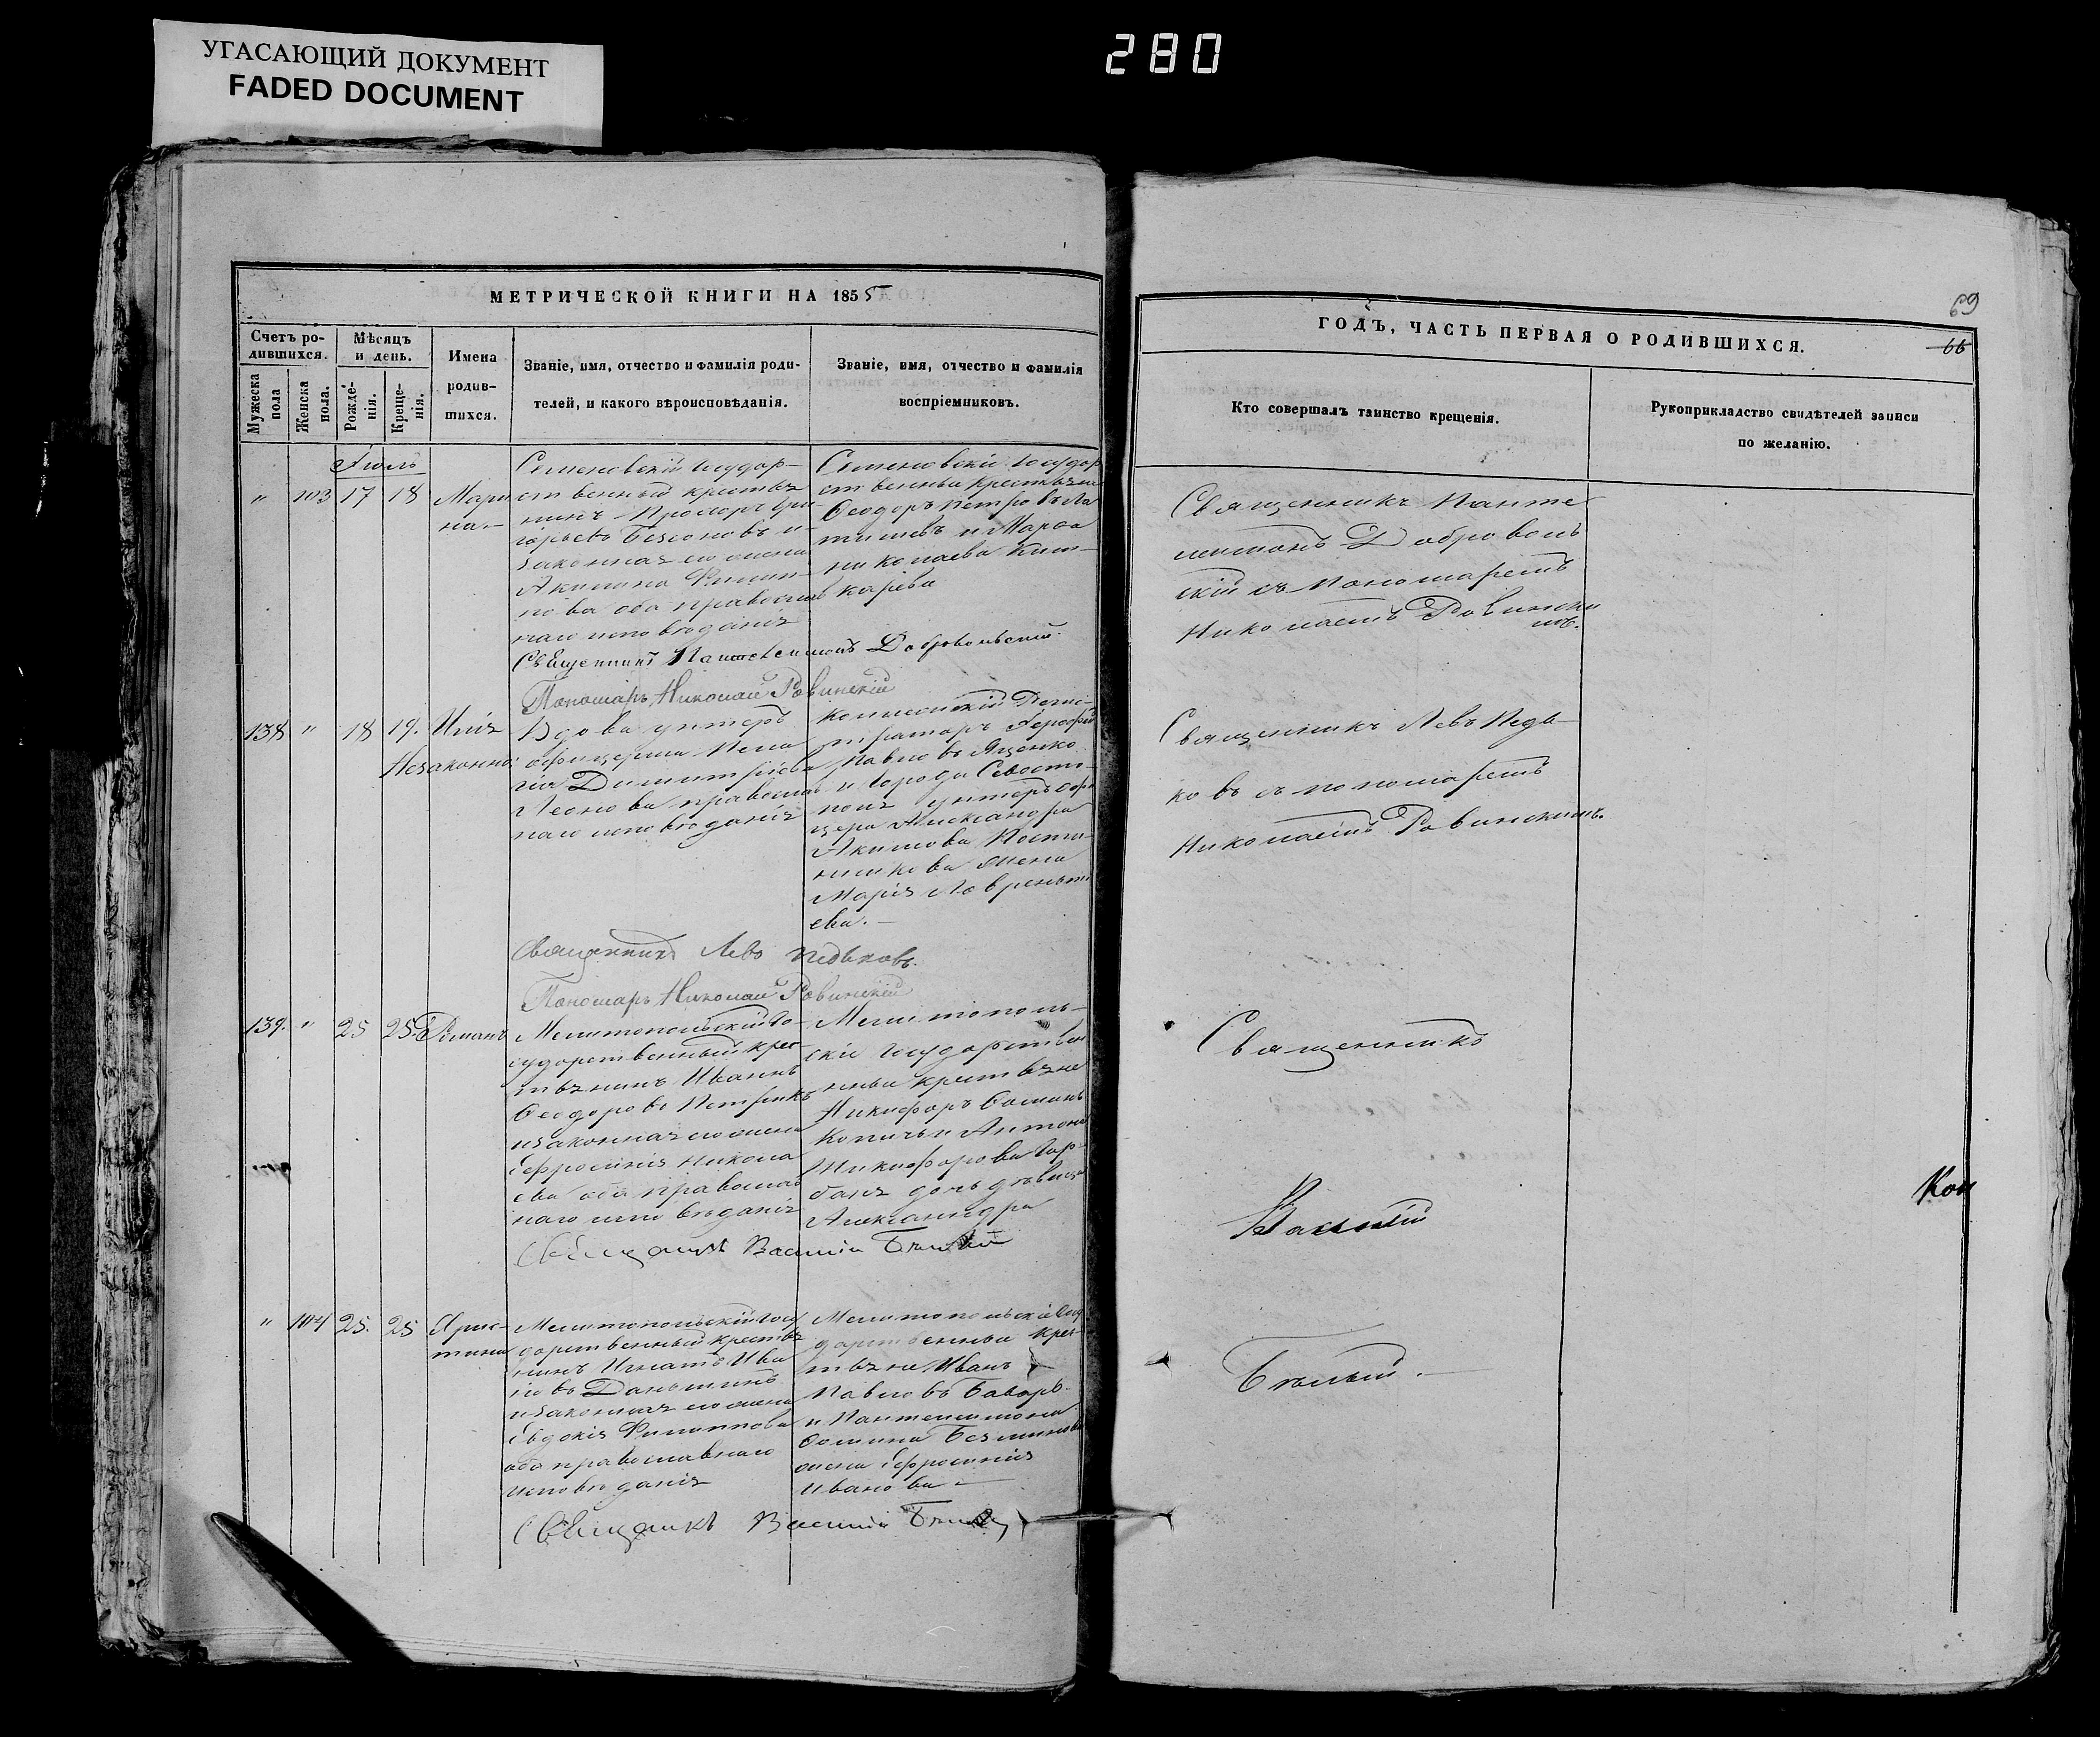 УГАСАЮЩИЙ ДОКУМЕНТ
FADED DOCUMENT
280
МЕТРИЧЕСКОЙ КНИГИ НА 1855
Счетъ ро-
дившихся.
Мужеска пола
Женска пола.
Мѣсяцъ
и день.
Рожде-
нія.
Креще-
нія.
Имена
родив-
шихся.
Званіе, имя, отчество и фамилія роди-
телей, и какого вѣроисповѣданія.
Званіе, имя, отчество и фамилія
воспріемниковъ.
Іюль
" 103 17 18 Мари
на.-
Семеновскій государ-
ственный крестья
нинъ Прохоръ Гри
горьевъ и
законная его жена
Акилина Филип-
пова оба православ
наго исповѣданія
Семеновскіе государ
ственные крестьяне
Ѳеодоръ Петровъ Ла
и Марѳа
Николаева
Священникъ Пантелеимонъ Добровольскій.
Пономарь Николай Ровинскій
138 " 18 19. Илія
Незаконно:
Вдова унтеръ
офицерша Пела
гія Димитріева
Леонова православ
наго исповѣданія
Коллежскій Регис-
траторъ
Павловъ Яценко
и города Севасто-
поля унтеръ офи
цера Александра
Акимова
жена
Марія Лаврентi
ева.-
Священникъ Левъ Педьковъ.
Пономарь Николай Ровинскій
139. " 25 25. Романъ
Мелитопольскій го-
сударственный крес
тьянинъ Иваннъ
Ѳеодоровъ Петрикъ
и законная его жена
Ефросинія Никола
ева оба православ
наго исповѣданія
Мелитополь-
скіе государствен
нные крестьяне
Никифоръ Ѳоминъ
и Антона
Никифорова Гор-
дочь дѣвица
Александра
Священникъ Василій Бѣлый
" 104 25. 25 Хрис-
тина
Мелитопольскій госу
дарственный крестья
нинъ Игнатъ Ива
новъ Даньшинъ
и законная его жена
Евдокія Филиппова
оба православнаго
исповѣданія
Мелитопольскіе госу
дарственные крес
тьяне Иванъ
Павловъ
и Пантелимона
Ѳомина
жена Ефросинія
Иванова
Священникъ Василій Бѣлый
69
66
ГОДЪ, ЧАСТЬ ПЕРВАЯ О РОДИВШИХСЯ.
Кто совершалъ таинство крещенія.
Рукоприкладство свидѣтелей записи
по желанію.
Священникъ Панте
леимонъ Доброволь
скій съ пономаремъ
Николаемъ Ровински
мъ.
Священникъ Левъ Педь-
ковъ съ пономаремъ
Николаемъ Ровинскимъ.
Священникъ
Василій
Бѣлый.
Кон